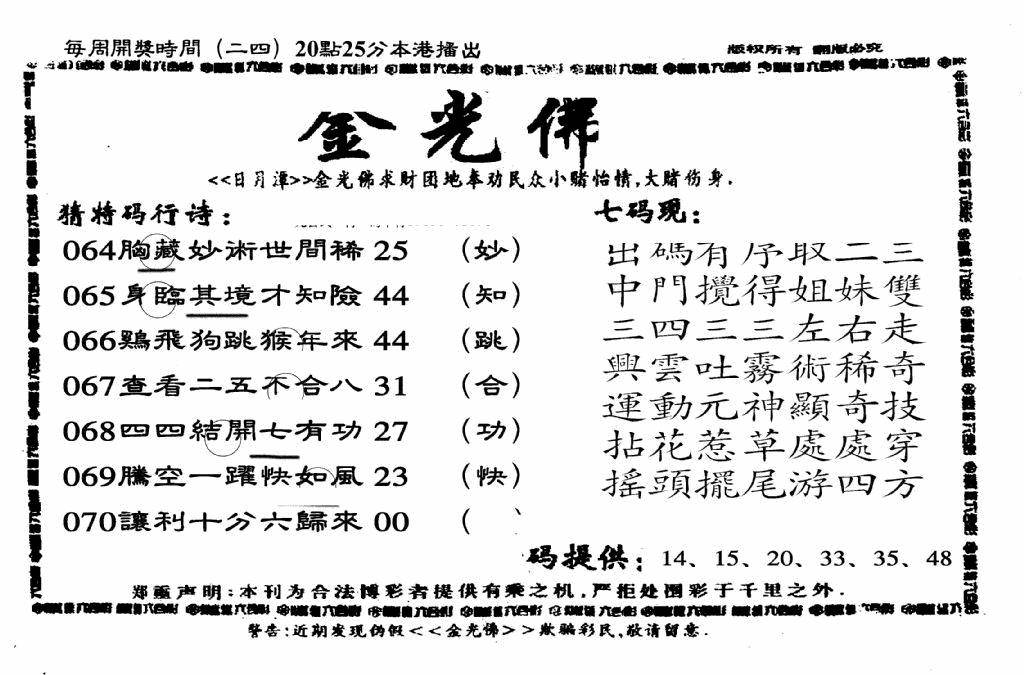 每周開獎時間（二四）20點25分本港播出
版权所有 翻版必究
金光佛
<<日月潭>>金光佛求财团地奉劝民众小赌怡情,大赌伤身.
猜特码行诗：
064胸藏妙術世間稀 25 （妙）
065身臨其境才知險 44 （知）
066鷄飛狗跳猴年來 44 （跳）
067查看二五不合八 31 （合）
068四四結開七有功 27 （功）
069騰空一躍快如風 23 （快）
070讓利十分六歸來 00 （
七码现：
出碼有序取二三
中門攪得姐妹雙
三四三三左右走
興雲吐霧術稀奇
運動元神顯奇技
拈花惹草處處穿
摇頭擺尾游四方
码提供：14、15、20、33、35、48
郑重声明:本刊为合法博彩者提供有乘之机,严拒处围彩于千里之外.
警告:近期发现伪假<<金光佛>>欺骗彩民,敬请留意.